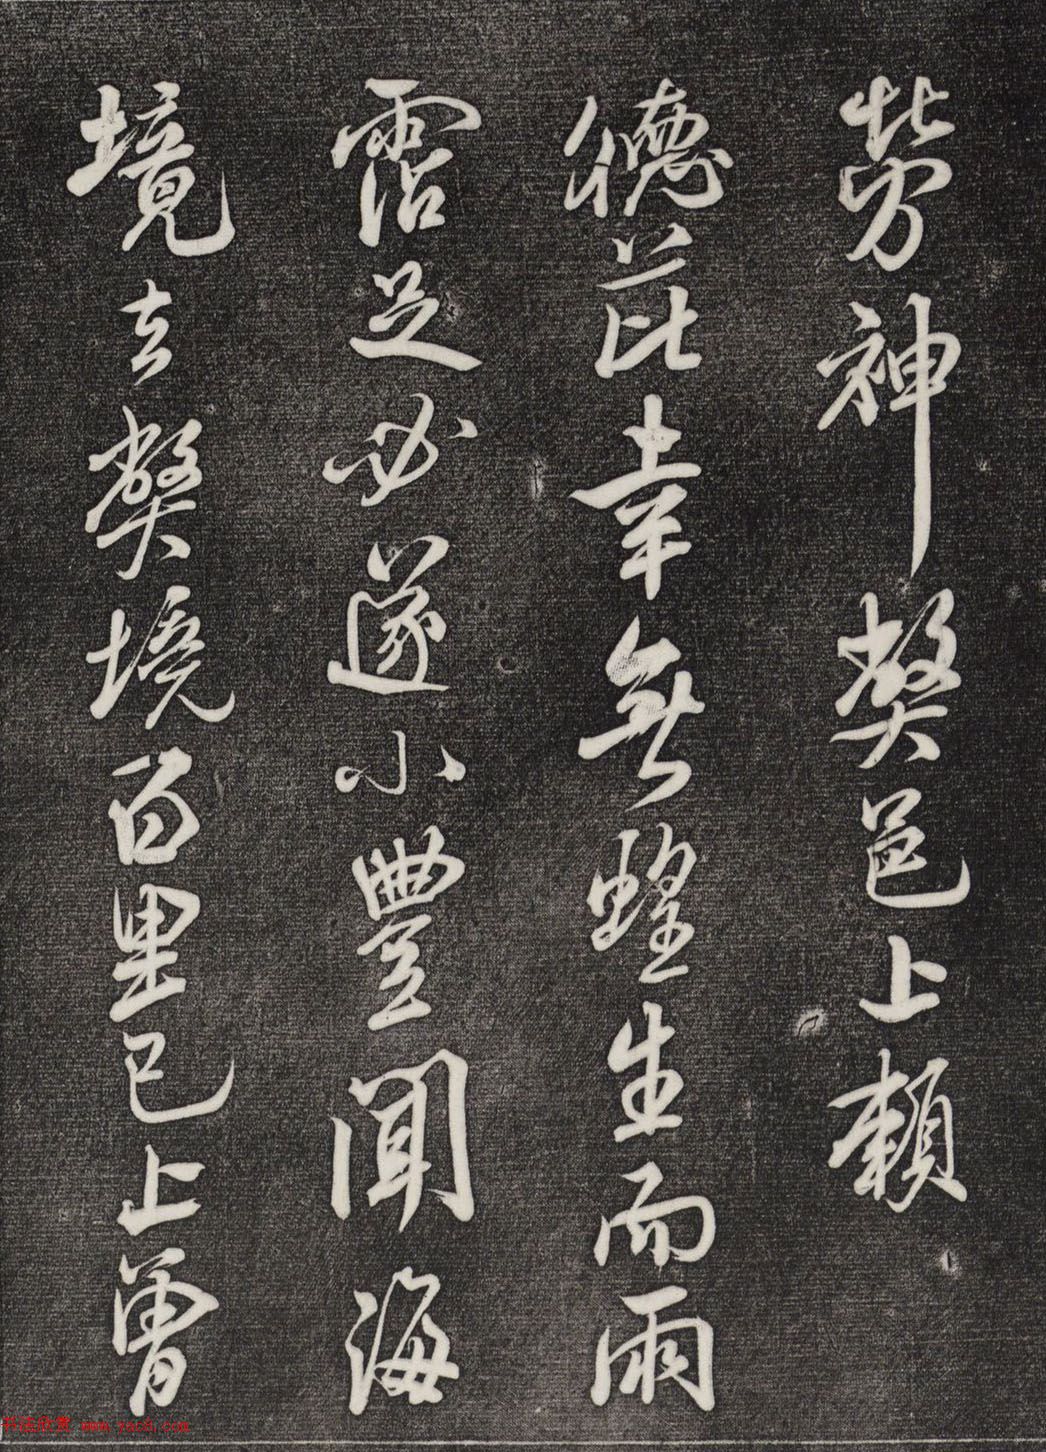 勞神獘邑上賴
德芘幸無蝗生而雨
霑足必遂小豐聞海
境去獘境百里已上曾
书法欣赏 www.yac8.com